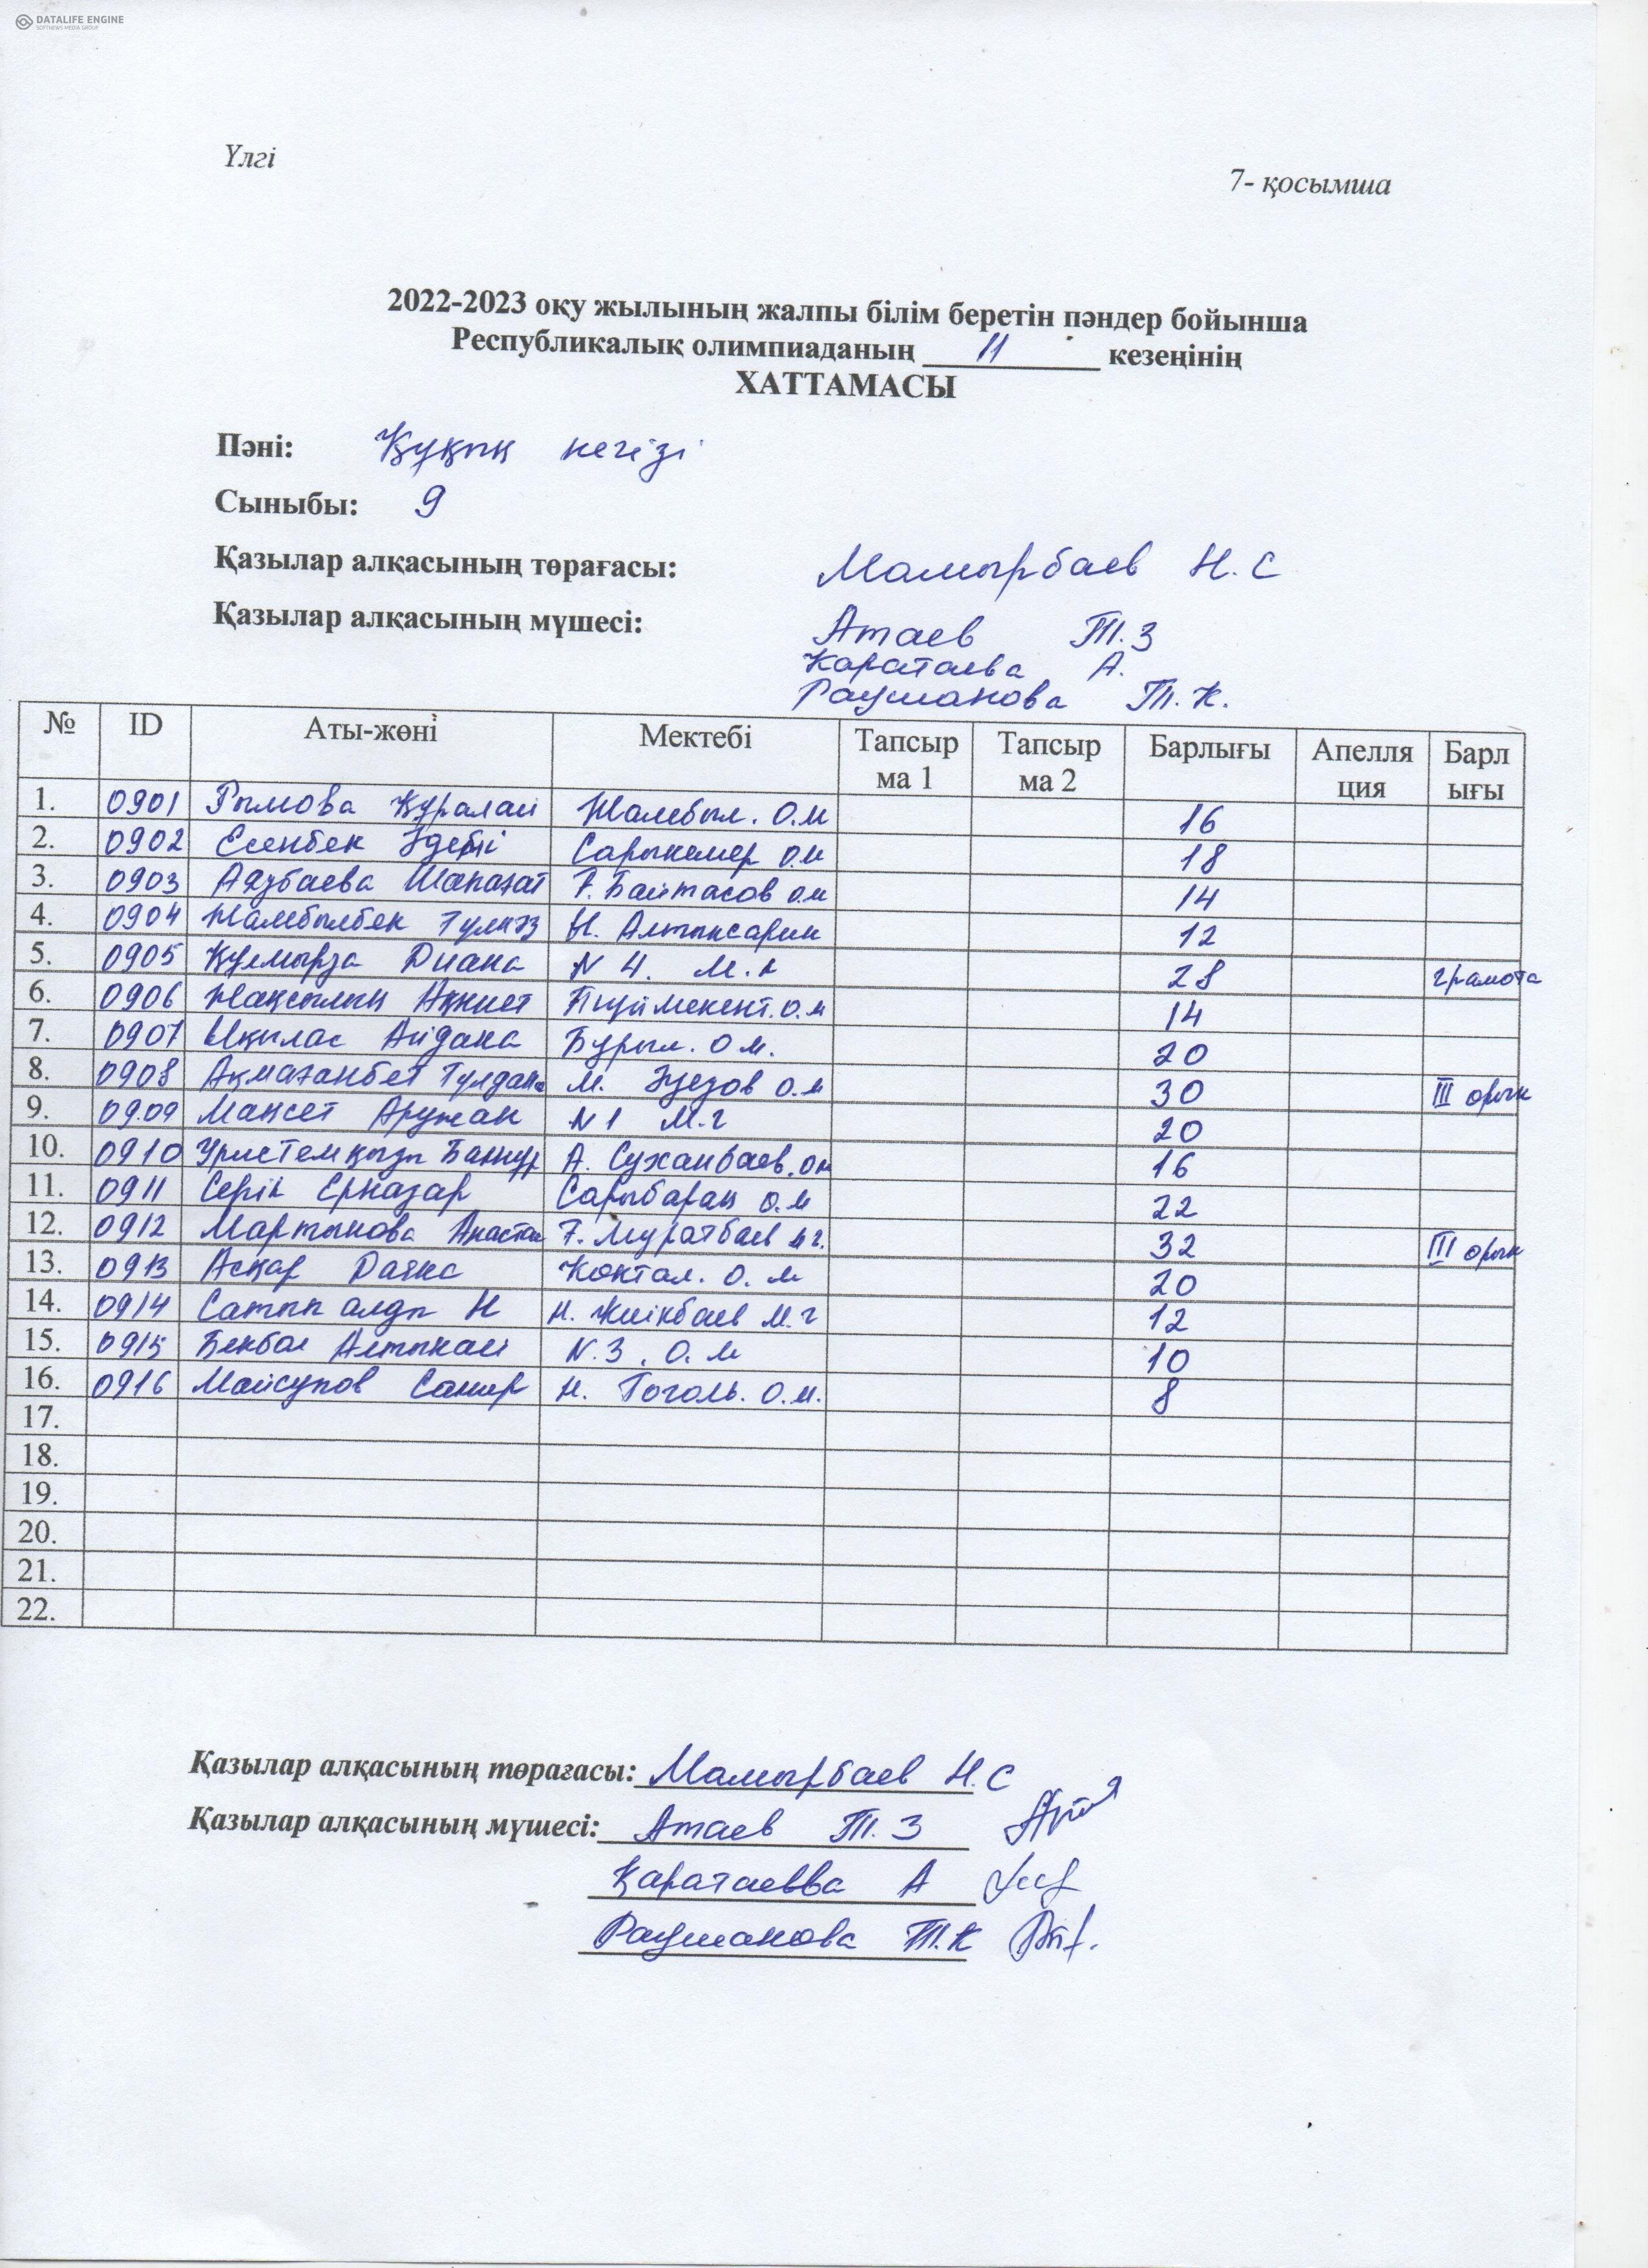 DATALIFE ENGINE
SOFTNEWS MEDIA GROUP
Үлгі
7- қосымша
2022-2023 оқу жылының жалпы білім беретін пәндер бойынша
Республикалық олимпиаданың 11 кезеңінің
ХАТТАМАСЫ
Пәні: Құқық негізі
Сыныбы: 9
Қазылар алқасының төрағасы: Мамырбаев Н.С
Қазылар алқасының мүшесі: Атаев Т.З
Каратаева А.
Раушанова Т.К.
№ ID Аты-жөні Мектебі Тапсыр ма 1 Тапсыр ма 2 Барлығы Апелля ция Барл ығы
1. 0901 Рымова Құралай Жамбыл. О.М 16
2. 0902 Есенбек Әдемі Сарыкемер О.М 18
3. 0903 Шапағат Байтасов О.М 14
4. 0904 Жамбылбек Ы. Алтынсарин 12
5. 0905 Құлмырза Диана N 4. М.Л 28 грамота
6. 0906 Жақсылық Ақниет О.М 14
7. 0907 Ықылас Айдана Бурыл. О М. 20
8. 0908 Ақмағанбет Тұлдана М. Әуезов О.М 30 III орын
9. 0909 Мақсет Аружан N 1 М.Г 20
10. 0910 А. Суханбаев. О М 16
11. 0911 Серік Ерназар Сарыбарақ О.М 22
12. 0912 Мартынова Анастаси Ғ. Мұратбаев М Г. 32 III орын
13. 0913 Асқар Даяна Көктал. О. М 20
14. 0914 Сатып алды Н М.Г 12
15. 0915 Бекбол Алтынай N.3. О. М 10
16. 0916 Майсупов Самир Н. Гоголь. О.М. 8
17.
18.
19.
20.
21.
22.
Қазылар алқасының төрағасы: Мамырбаев Н.С
Қазылар алқасының мүшесі: Атаев Т. З
Қаратаевва А
Раушанова Т.К